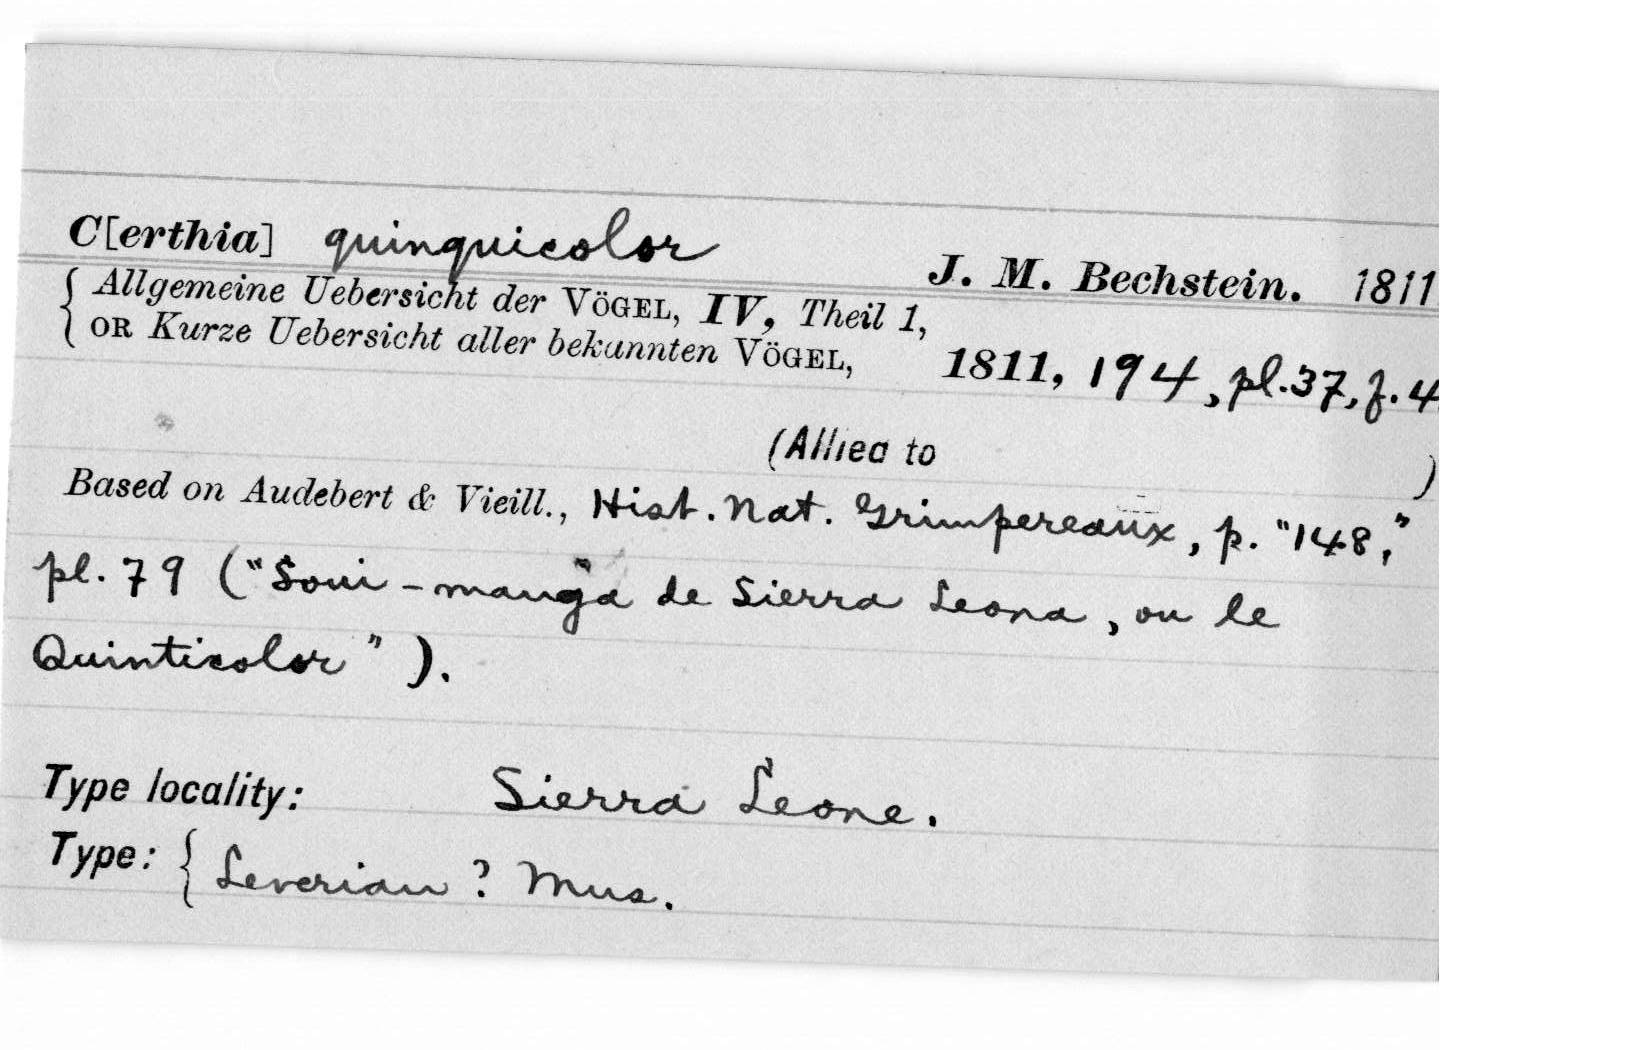 C[erthia] quinquicolor J. M. Bechstein. 1811
{ Allgemeine Uebersicht der VÖGEL, IV, Theil 1,
OR Kurze Uebersicht aller bekannten VÖGEL, 1811, 194, pl.37, f.4
(Allied to )
Based on Audebert & Vieill., Hist. Nat. Grimpereaux, p. "148,"
pl. 79 ("Soui-manga de Sierra Leona, ou le
Quinticolor").
Type locality: Sierra Leone.
Type: { Leverian ? Mus.